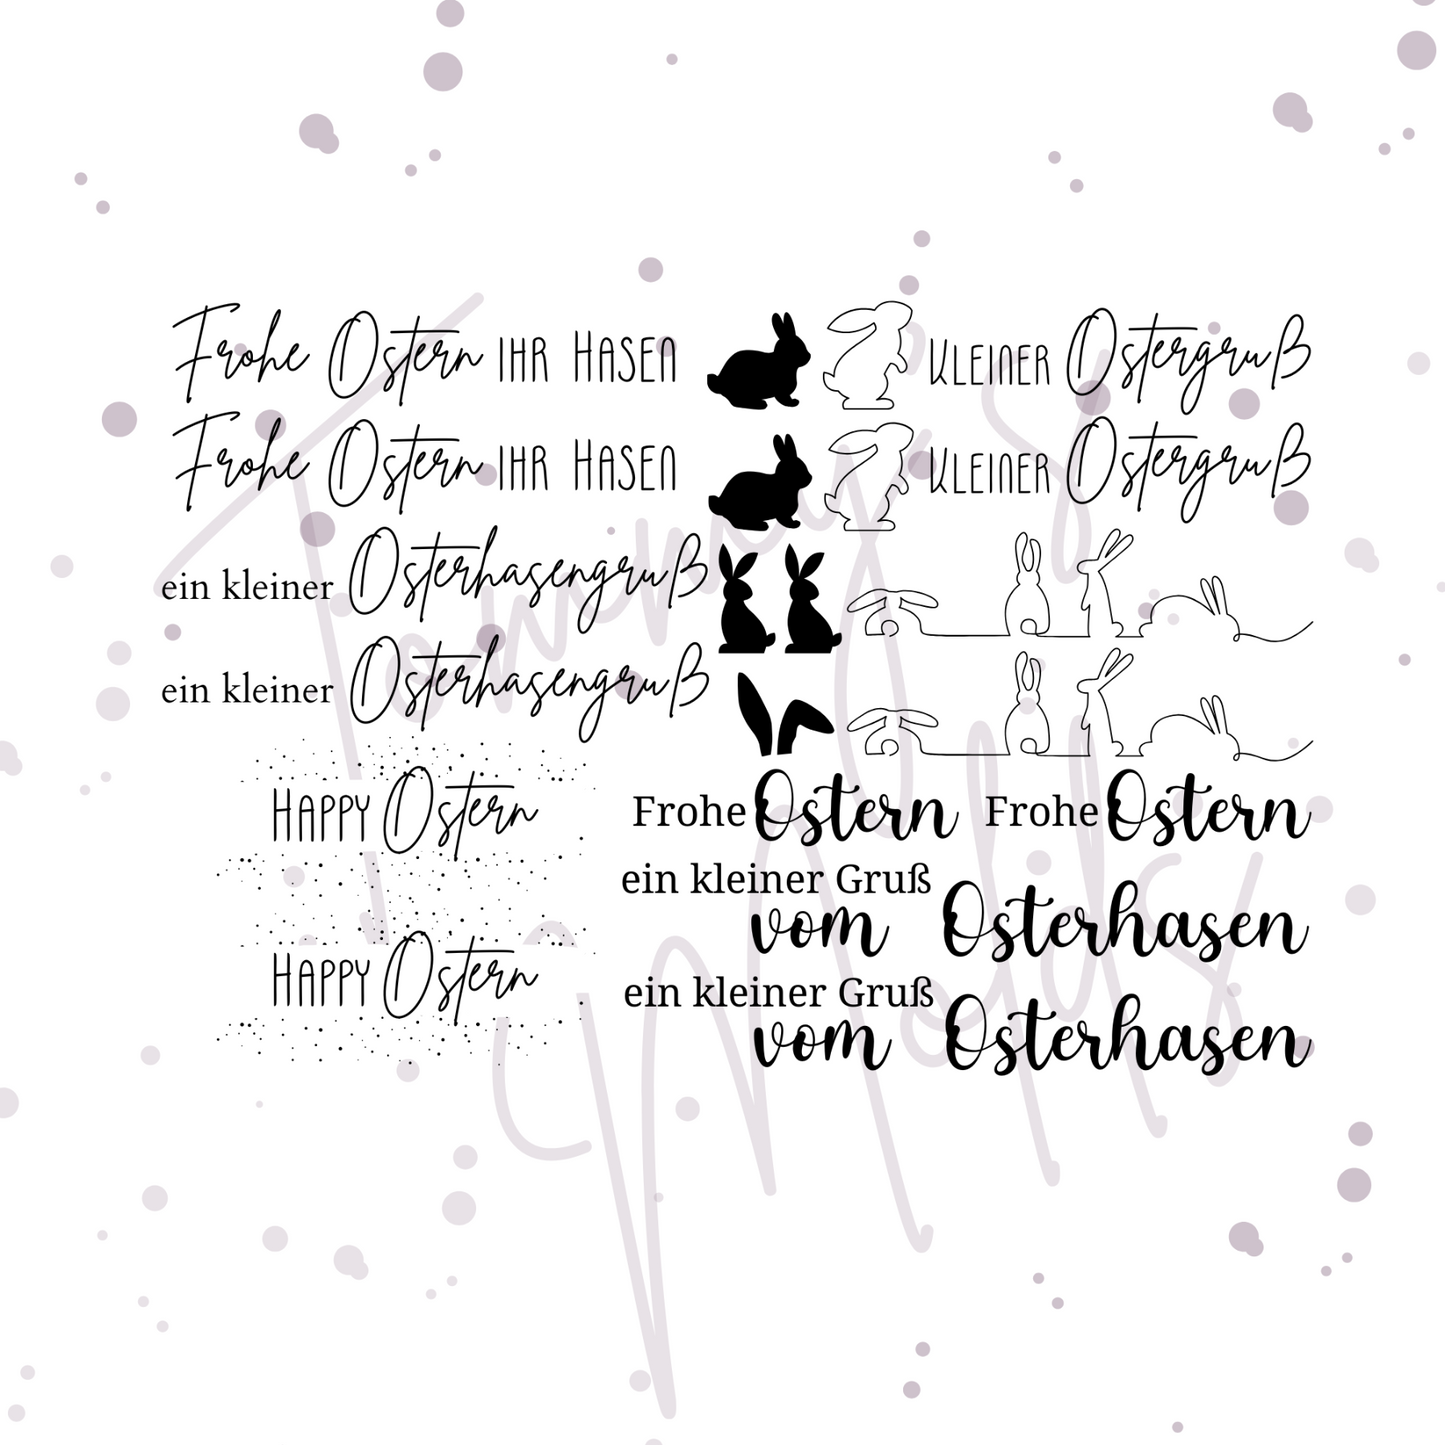 Frohe Ostern IHR HASEN
KLEINER Ostergruß
Frohe Ostern IHR HASEN
KLEINER Ostergruß
ein kleiner Osterhasengruß
ein kleiner Osterhasengruß
HAPPY Ostern
Frohe Ostern
Frohe Ostern
ein kleiner Gruß
vom Osterhasen
HAPPY Ostern
ein kleiner Gruß
vom Osterhasen
Tommy's
Molds